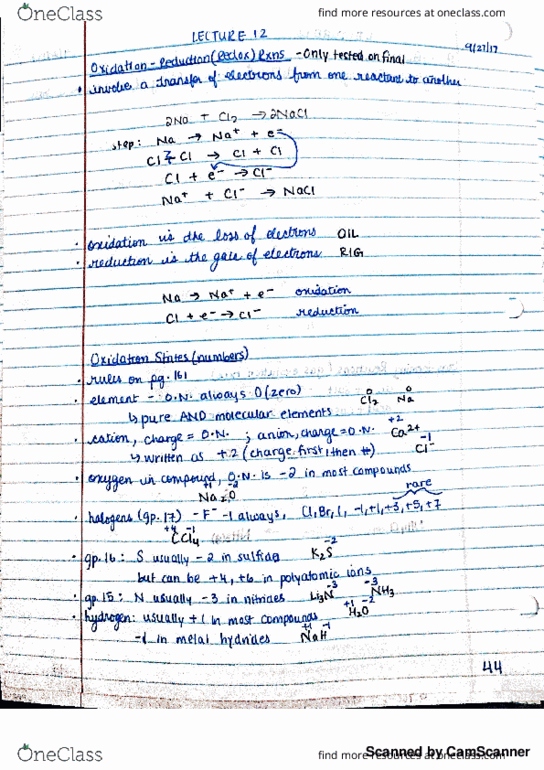 OneClass
find more resources at oneclass.com
LECTURE 12
9/27/17
Oxidation-Reduction (Redox) Rxns - Only tested on final
• involve a transfer of electrons from one reactant to another
2Na + Cl2 → 2NaCl
step: Na → Na+ + e-
Cl-Cl → Cl + Cl
Cl + e- → Cl-
Na+ + Cl- → NaCl
• oxidation is the loss of electrons OIL
• reduction is the gain of electrons RIG
Na → Na+ + e- oxidation
Cl + e- → Cl- reduction
Oxidation States (numbers)
• rules on pg. 161
• element - O.N. always 0 (zero) Cl2 0 Na 0
↳ pure AND molecular elements
• cation, charge = O.N. ; anion, charge = O.N. Ca2+ +2
↳ written as +2 (charge first, then #) Cl- -1
• oxygen in compound, O.N. is -2 in most compounds
+1 -2
Na2O
rare
• halogens (gp. 17) - F- -1 always, Cl, Br, I, -1, +1, +3, +5, +7
+4 -1
CCl4
• gp. 16: S usually -2 in sulfides K2S -2
but can be +4, +6 in polyatomic ions
• gp. 15: N usually -3 in nitrides Li3N -3 NH3 -3
• hydrogen: usually +1 in most compounds H2O +1 -2
-1 in metal hydrides NaH +1 -1
44
Scanned by CamScanner
OneClass
find more resources at oneclass.com